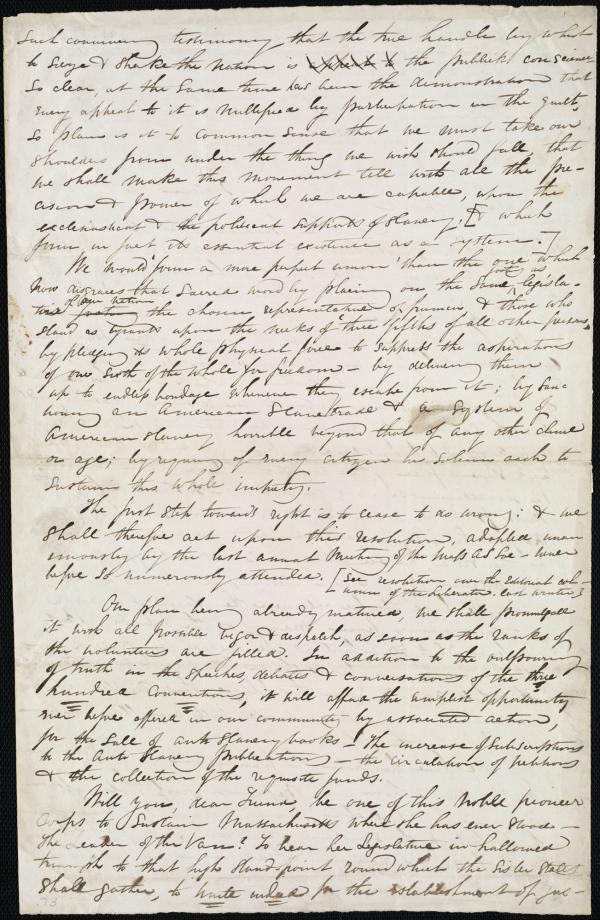 Such convincing testimony that the true handle by which
to Seize & Shake the Nation is appeals to the publick conscience
So clear, at the Same time has been the demonstration that
every appeal to it is nullified by participation in the guilt,
So plain is it to common sense that we must take our
shoulders from under the thing we wish should fall, that
we shall make this movement tell with all the pre-
cision & power of which we are capable, upon the
ecclesiastical & the political supports of slavery; [& which
form, in fact its essential existence as a system.]
We would 'form a more perfect union' than the one which
now disgraces that Sacred word by placing on the Same legisla-
footing as
tive of our nation the chosen representatives of freemen & those who
stand as tyrants upon the necks of 'three fifths of all other persons,'
by pledging its whole physical force to suppress the aspirations
of one Sixth of the whole for freedom – by delivering them
up to endless bondage whenever they escape from it; by sanc-
tioning an American Slave trade & a System of
American slavery horrible beyond that of any other clime
or age; by requiring of every citizen his solemn oath to
Sustain this whole iniquity.
The first step towards right is to cease to do wrong: & we
shall therefore act upon this resolution, adopted unan-
imously by the last annual Meeting of the Mass A S Soc – never
before so numerously attended. [See resolution over the Editorial col-
umn of the Liberator. last written]
Our plan being already matured, we shall promulgate
it with all possible vigor & despatch, as soon as the ranks of
the volunteers are filled. In addition to the outpouring
of truth in the speeches, debates & conversations of the three
hundred Conventions, it will afford the amplest opportunity
ever before offered in our community by associated action,
for the Sale of anti Slavery books – the increase of Subscriptions
to the Anti Slavery publications – the circulation of petitions
& the collection of the requisite funds.
Will you, dear Friend, be one of this Noble pioneer
Corps to Sustain Massachusetts where she has ever stood –
the Leader of the Van? To hear her Legislature in hallowed
triumph to that high Stand-point round which the Sister States
Shall gather, to unite indeed for the establishment of jus-